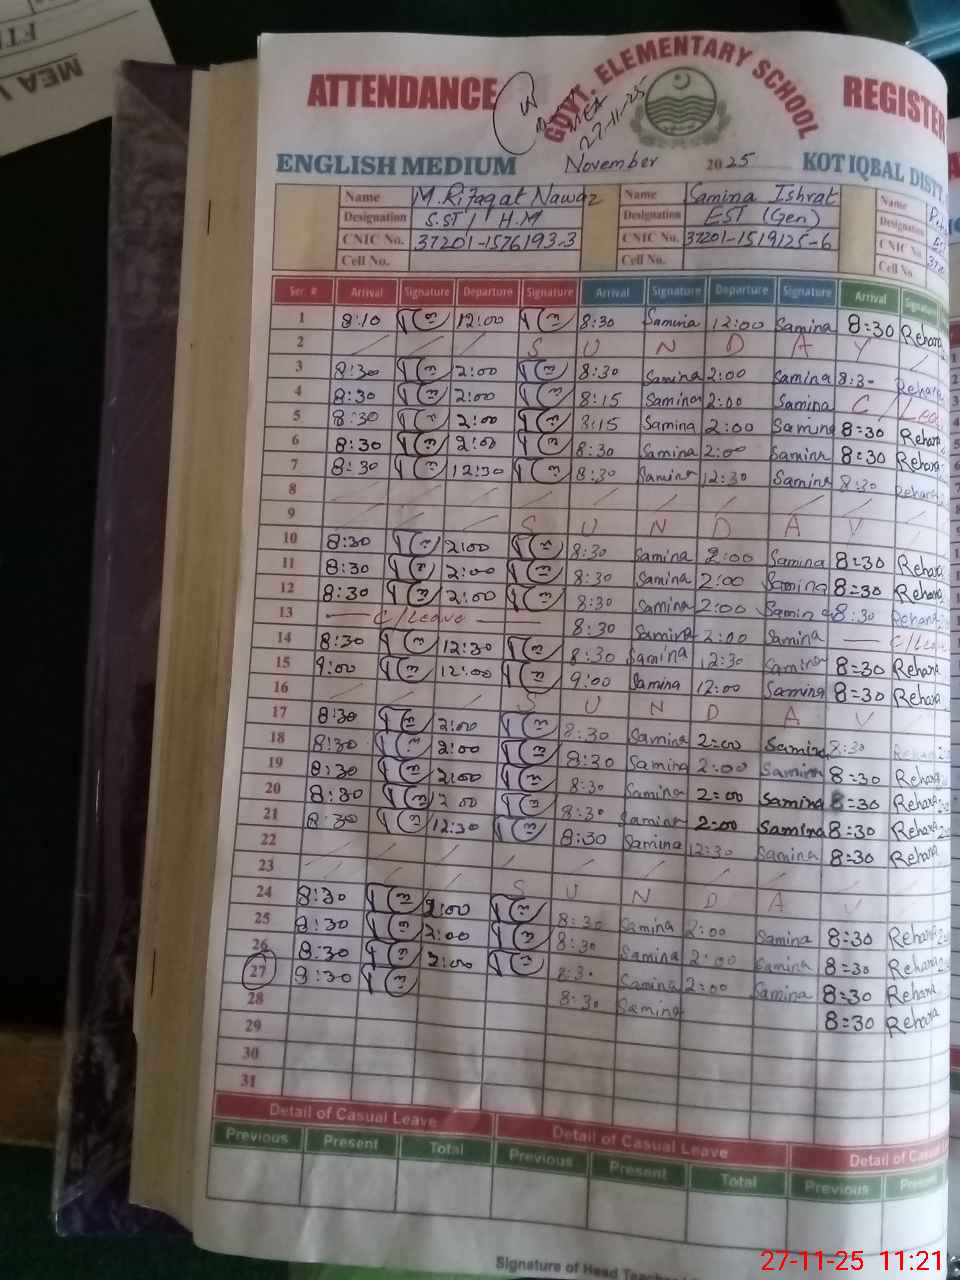 MEA
ATTENDANCE GOVT. ELEMENTARY SCHOOL REGISTER
27-11-25
ENGLISH MEDIUM November 2025 KOT IQBAL DISTT.
Name M. Rifaqat Nawaz Name Samina Ishrat Name
Designation S.ST / H.M Designation EST (Gen) Designation
CNIC No. 37201-1576193-3 CNIC No. 37201-1519125-6 CNIC No.
Cell No. Cell No. Cell No.
Ser. # Arrival Signature Departure Signature Arrival Signature Departure Signature Arrival Signature
1 8:10 12:00 8:30 Samina 12:00 Samina 8=30 Rehana
2 S U N D A Y
3 8:30 2:00 8:30 Samina 2:00 Samina 8:30 Rehana
4 8:30 2:00 8:15 Samina 2:00 Samina C/Leave
5 8:30 2:00 8:15 Samina 2:00 Samina 8=30 Rehana
6 8:30 2:00 8:30 Samina 2:00 Samina 8=30 Rehana
7 8:30 12:30 8:30 Samina 12:30 Samina 8:30 Rehana
8
9 S U N D A Y
10 8:30 2:00 8:30 Samina 2:00 Samina 8=30 Rehana
11 8:30 2:00 8:30 Samina 2:00 Samina 8=30 Rehana
12 8:30 2:00 8:30 Samina 2:00 Samina 8:30 Rehana
13 C/Leave 8:30 Samina 2:00 Samina C/Leave
14 8:30 12:30 8:30 Samina 12:30 Samina 8=30 Rehana
15 9:00 12:00 9:00 Samina 12:00 Samina 8=30 Rehana
16 S U N D A Y
17 8:30 2:00 8:30 Samina 2:00 Samina 8:30 Rehana
18 8:30 2:00 8:30 Samina 2:00 Samina 8=30 Rehana
19 8:30 2:00 8:30 Samina 2:00 Samina 8=30 Rehana
20 8:30 2:00 8:30 Samina 2:00 Samina 8=30 Rehana
21 8:30 12:30 8:30 Samina 12:30 Samina 8=30 Rehana
22
23 S U N D A Y
24 8:30 2:00 8:30 Samina 2:00 Samina 8=30 Rehana
25 8:30 2:00 8:30 Samina 2:00 Samina 8=30 Rehana
26 8:30 2:00 8:30 Samina 2:00 Samina 8=30 Rehana
27 8:30 8:30 Samina 8=30 Rehana
28
29
30
31
Detail of Casual Leave Detail of Casual Leave Detail of
Previous Present Total Previous Present Total Previous
Signature of Head
27-11-25 11:21